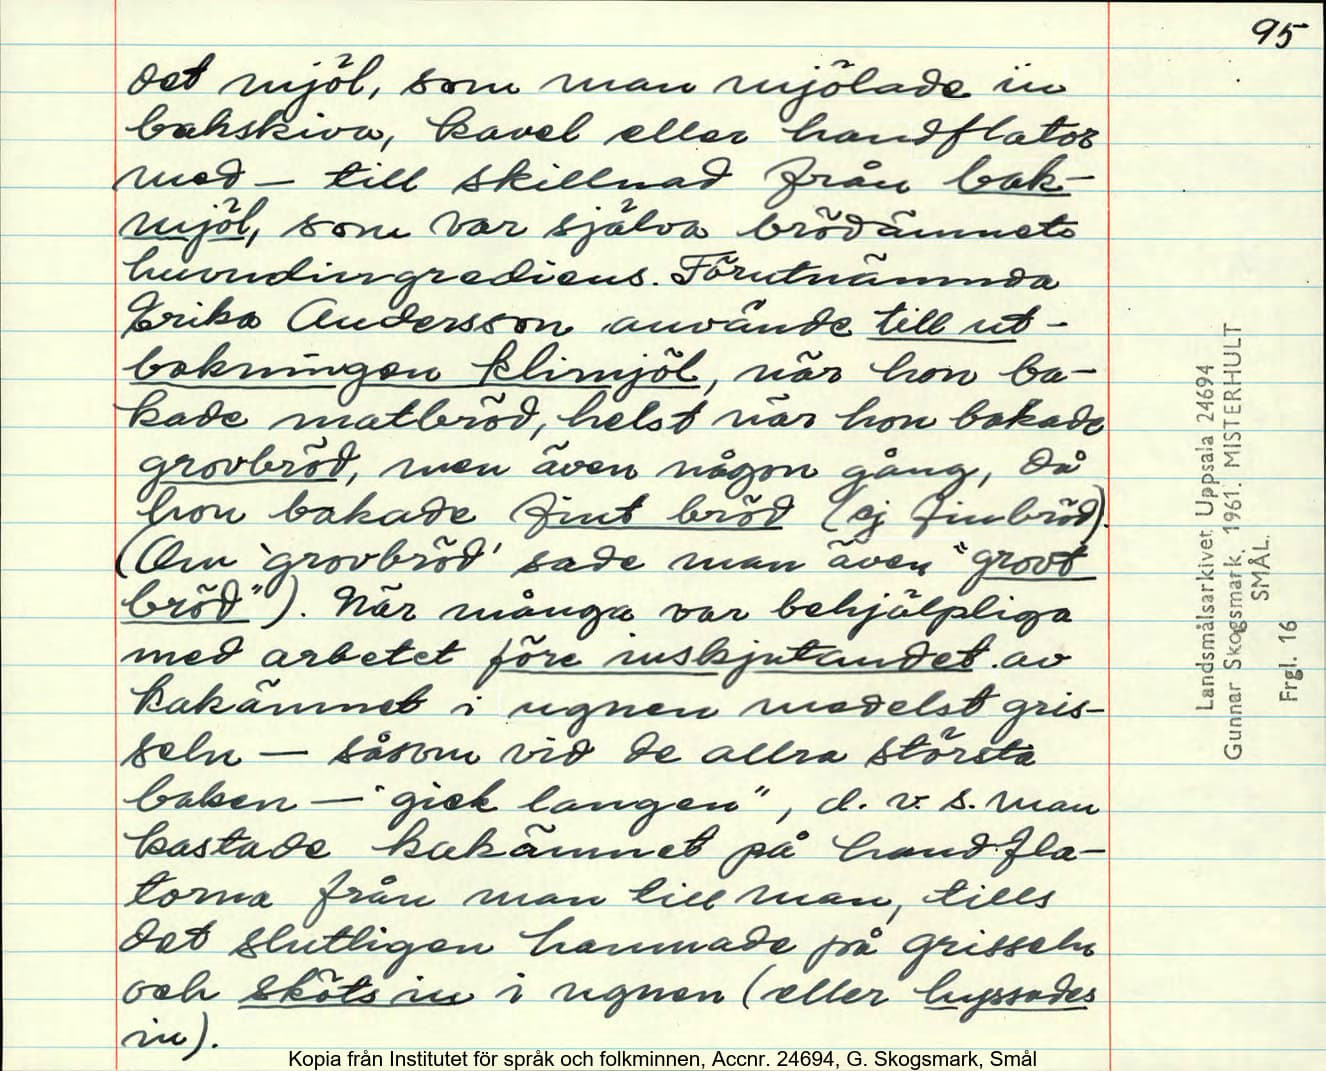 95
det mjöl, som man mjölade in
bakskiva, kavel eller handflator
med – till skillnad från bak-
mjöl, som var själva brödämnets
huvudingrediens. Förutnämnda
Erika Andersson använde till ut-
bakningen klimjöl, när hon ba-
kade matbröd, helst när hon bakade
grovbröd, men även någon gång, då
hon bakade fint bröd (ej finbröd).
(Om 'grovbröd' sade man även "grovt
bröd"). När många var behjälpliga
med arbetet före inskjutandet av
kakämnet i ugnen medelst gris-
seln – såsom vid de allra största
baken – "gick langen", d. v. s. man
kastade kakämnet på handfla-
torna från man till man, tills
det slutligen hamnade på grisseln
och sköts in i ugnen (eller hyssades
in).
Landsmålsarkivet Uppsala 24694
Gunnar Skogsmark. 1961. MISTERHULT
SMÅL.
Frgl. 16
Kopia från Institutet för språk och folkminnen, Accnr. 24694, G. Skogsmark, Smål